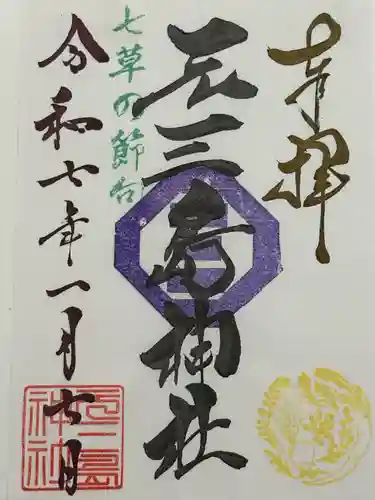 奉拝
元三島神社
七草の節句
令和七年一月七日
元三島神社